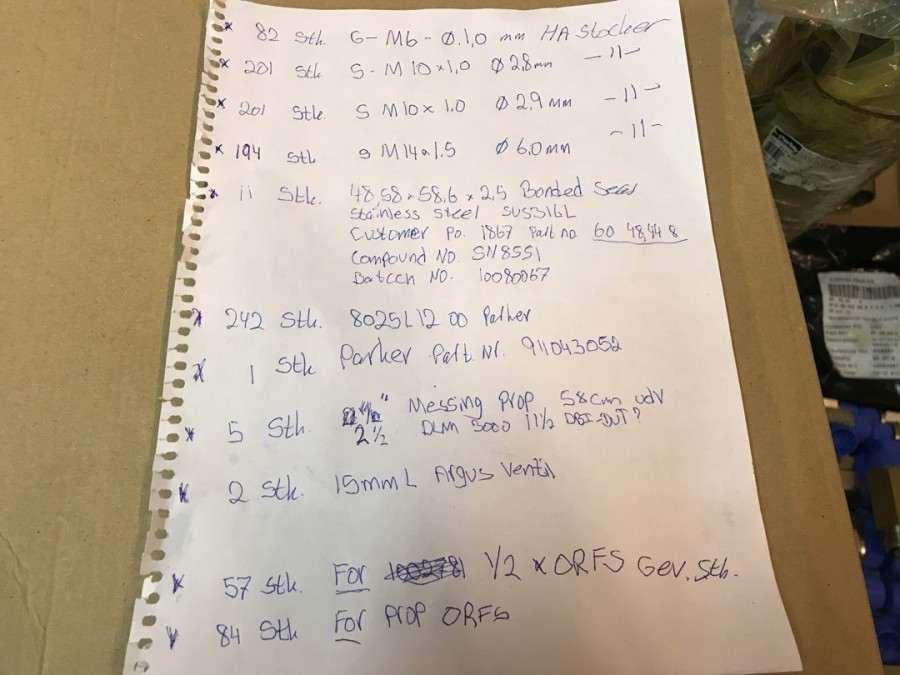 * 82 Stk. G-M6-Ø.1,0 mm HA Stocker
* 201 Stk S-M10x1,0 Ø 2,8mm -11-
* 201 Stk. S M10x1.0 Ø 2.9mm -11-
* 194 Stk S M14 1.5 Ø 6.0mm -11-
* 11 Stk. 48,58 x 58,6 x 2,5 Bonded Seal
Stainless Steel SUS316L
Customer Po. 1867 Part no. 60 48,44 8
Compound No. SN8551
Batcch NO. 10080067
* 242 Stk. 8025L 12 00 Parker
* 1 Stk Parker Part Nr. 911043052
* 5 Stk. 2 1/2" Messing Prop 58cm udv
3000 11 1/2
* 2 Stk. 15mm L Argus Ventil
* 57 Stk. For 1/2 x ORFS Gev. Stk.
* 84 Stk For Prop ORFS
Parker